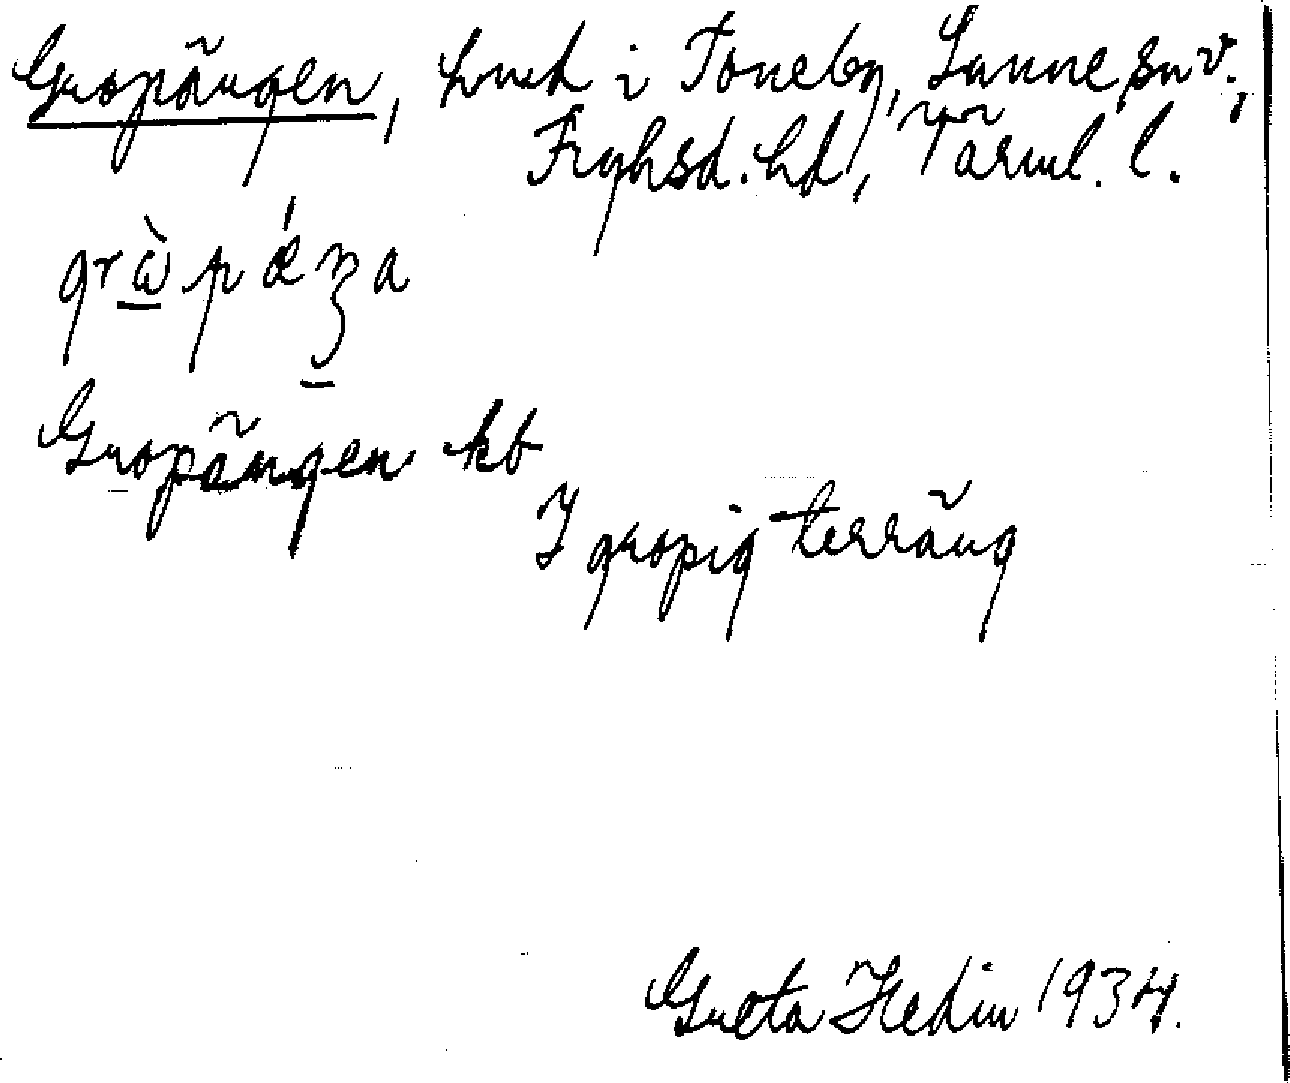 Gropängen, hmd i Toneby, Sunne sn v.,
Fryksd. hd, Värml. l.
Gropängen kb
I gropig terräng
Greta Hedin 1934.